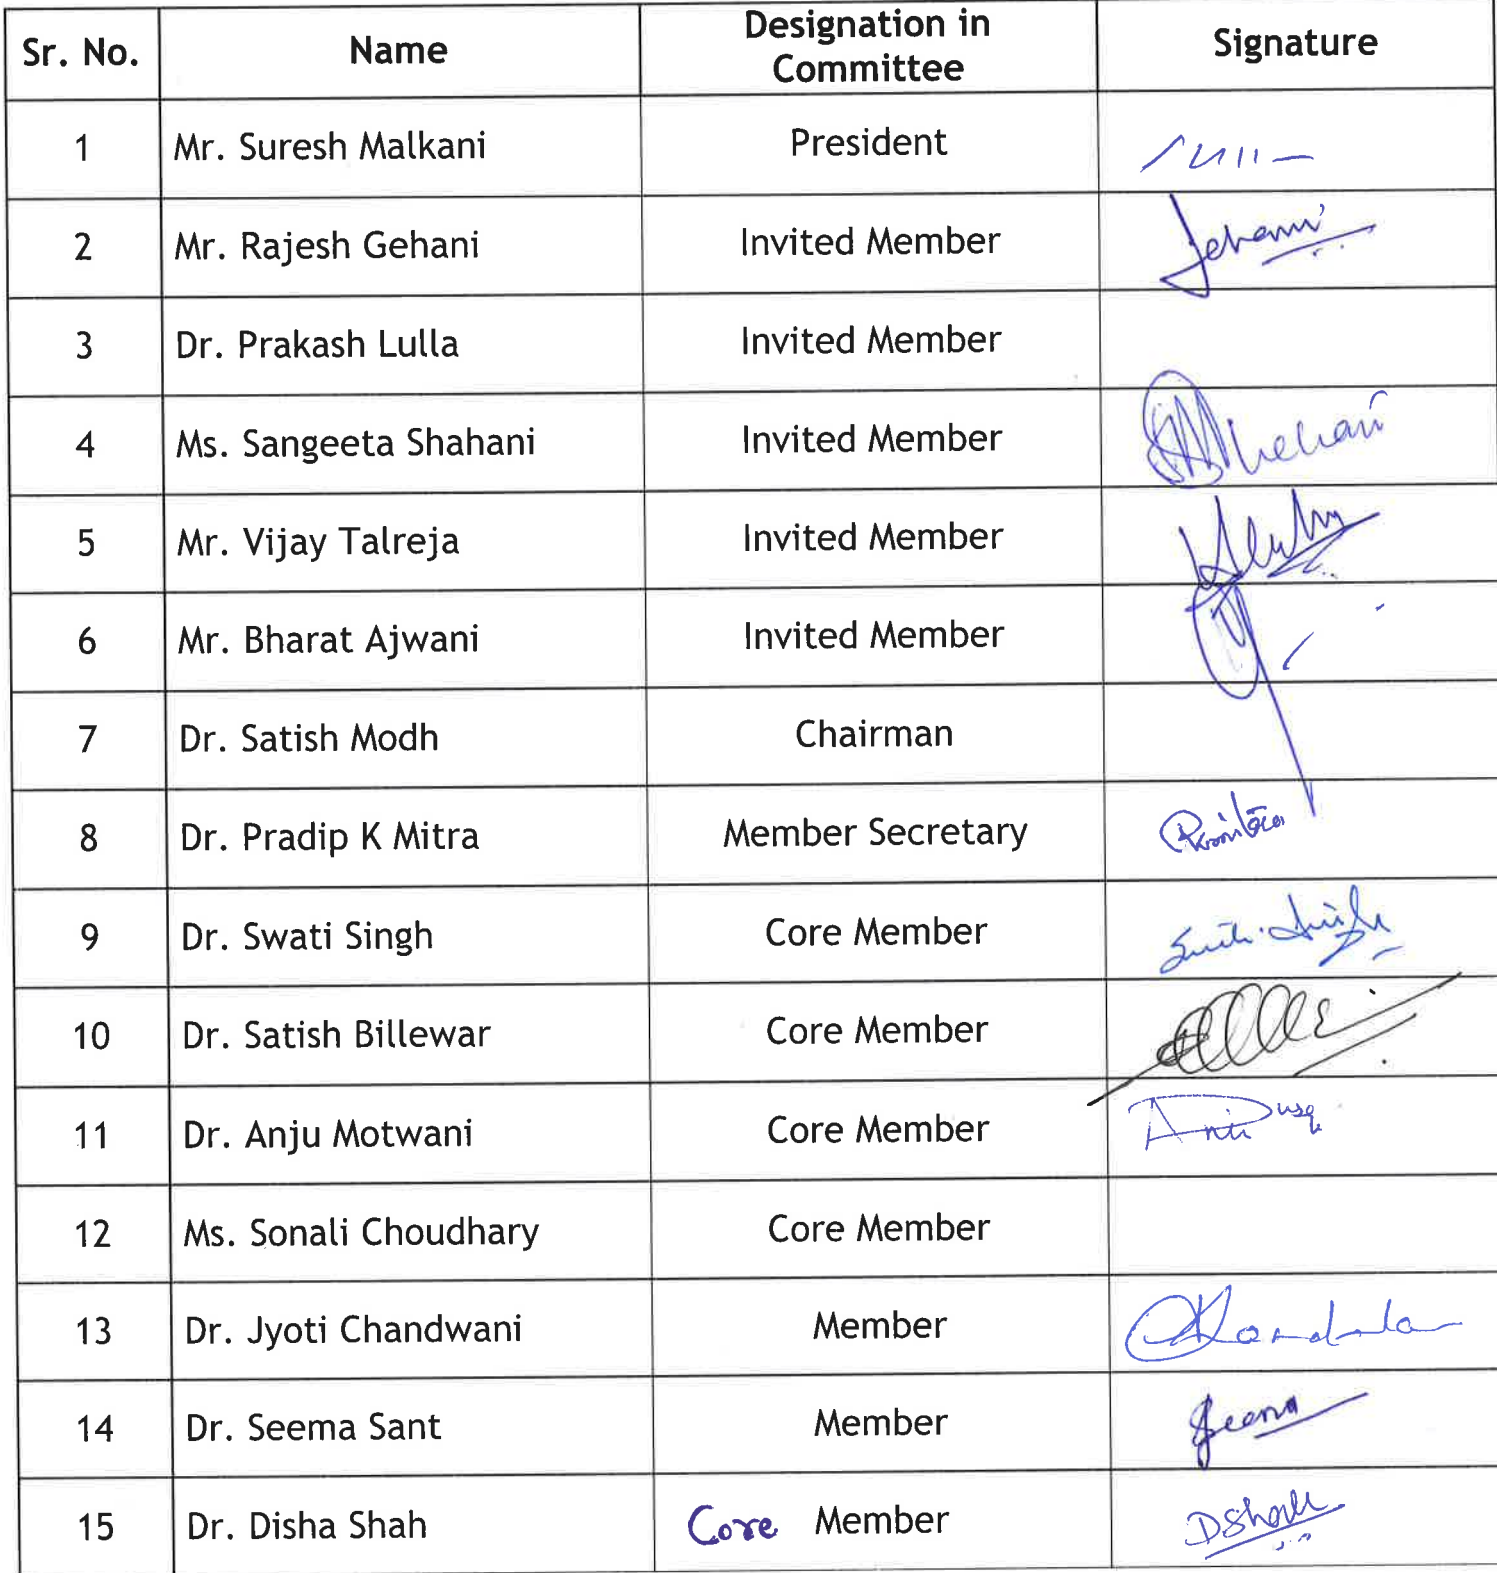 Sr. No. Name Designation in Committee Signature
1 Mr. Suresh Malkani President
2 Mr. Rajesh Gehani Invited Member
3 Dr. Prakash Lulla Invited Member
4 Ms. Sangeeta Shahani Invited Member
5 Mr. Vijay Talreja Invited Member
6 Mr. Bharat Ajwani Invited Member
7 Dr. Satish Modh Chairman
8 Dr. Pradip K Mitra Member Secretary
9 Dr. Swati Singh Core Member
10 Dr. Satish Billewar Core Member
11 Dr. Anju Motwani Core Member
12 Ms. Sonali Choudhary Core Member
13 Dr. Jyoti Chandwani Member
14 Dr. Seema Sant Member
15 Dr. Disha Shah Core Member DShah